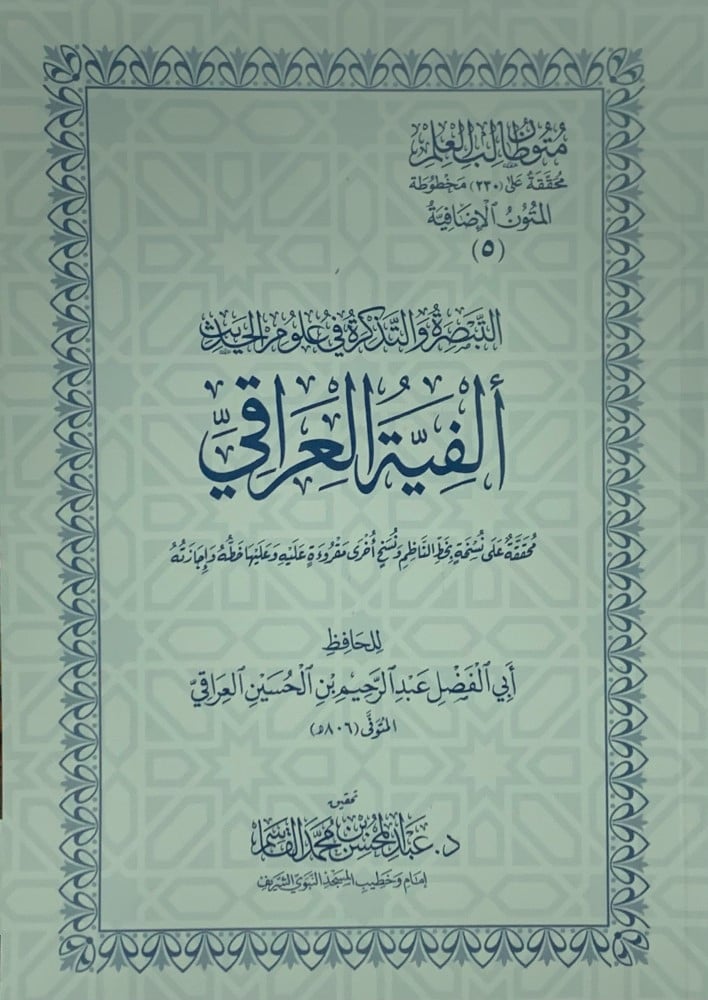 مُتُونُ طَالِبِ الْعِلْمِ
مُحَقَّقَةٌ عَلَى (٢٣٠) مَخْطُوطَة
المُتُونُ الْإِضَافِيَّةُ
(٥)
التَّبْصِرَةُ وَالتَّذْكِرَةُ فِي عُلُومِ الْحَدِيثِ
أَلْفِيَّةُ الْعِرَاقِيِّ
مُحَقَّقَةٌ عَلَى نُسْخَةٍ بِخَطِّ النَّاظِمِ وَنُسَخٍ أُخْرَى مَقْرُوءَةٍ عَلَيْهِ وَعَلَيْهَا خَطُّهُ وَإِجَازَتُهُ
لِلْحَافِظِ
أَبِي الْفَضْلِ عَبْدِ الرَّحِيمِ بْنِ الْحُسَيْنِ الْعِرَاقِيِّ
المُتَوَفَّى (٨٠٦هـ)
تحقيق
د. عَبْدِ الْمُحْسِنِ بْنِ مُحَمَّدٍ الْقَاسِمِ
إِمَامِ وَخَطِيبِ المَسْجِدِ النَّبَوِيِّ الشَّرِيفِ